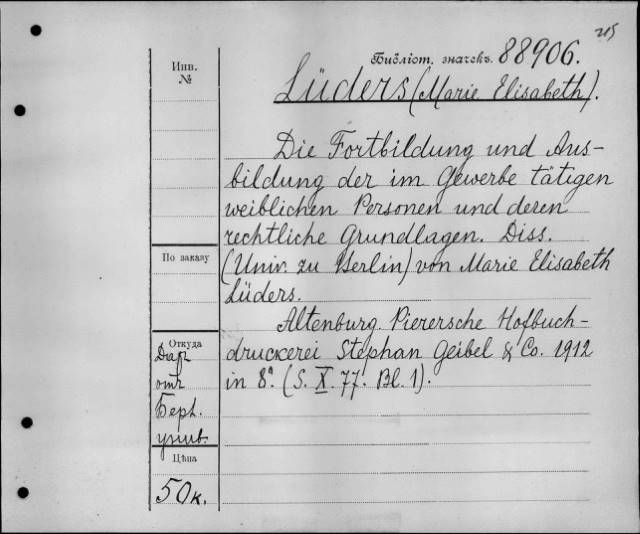 215
Библіот. значекъ 88906.
Инв.
№
Lüders (Marie Elisabeth).
Die Fortbildung und Aus-
bildung der im Gewerbe tätigen
weiblichen Personen und deren
rechtliche Grundlagen. Diss.
По заказу
(Univ. zu Berlin) von Marie Elisabeth
Lüders.
Altenburg. Pierersche Hofbuch-
Откуда
druckerei Stephan Geibel & Co. 1912
Даръ
отъ
in 8º. (S. X. 77. Bl. 1).
Берл.
унив.
Цѣна
50 к.